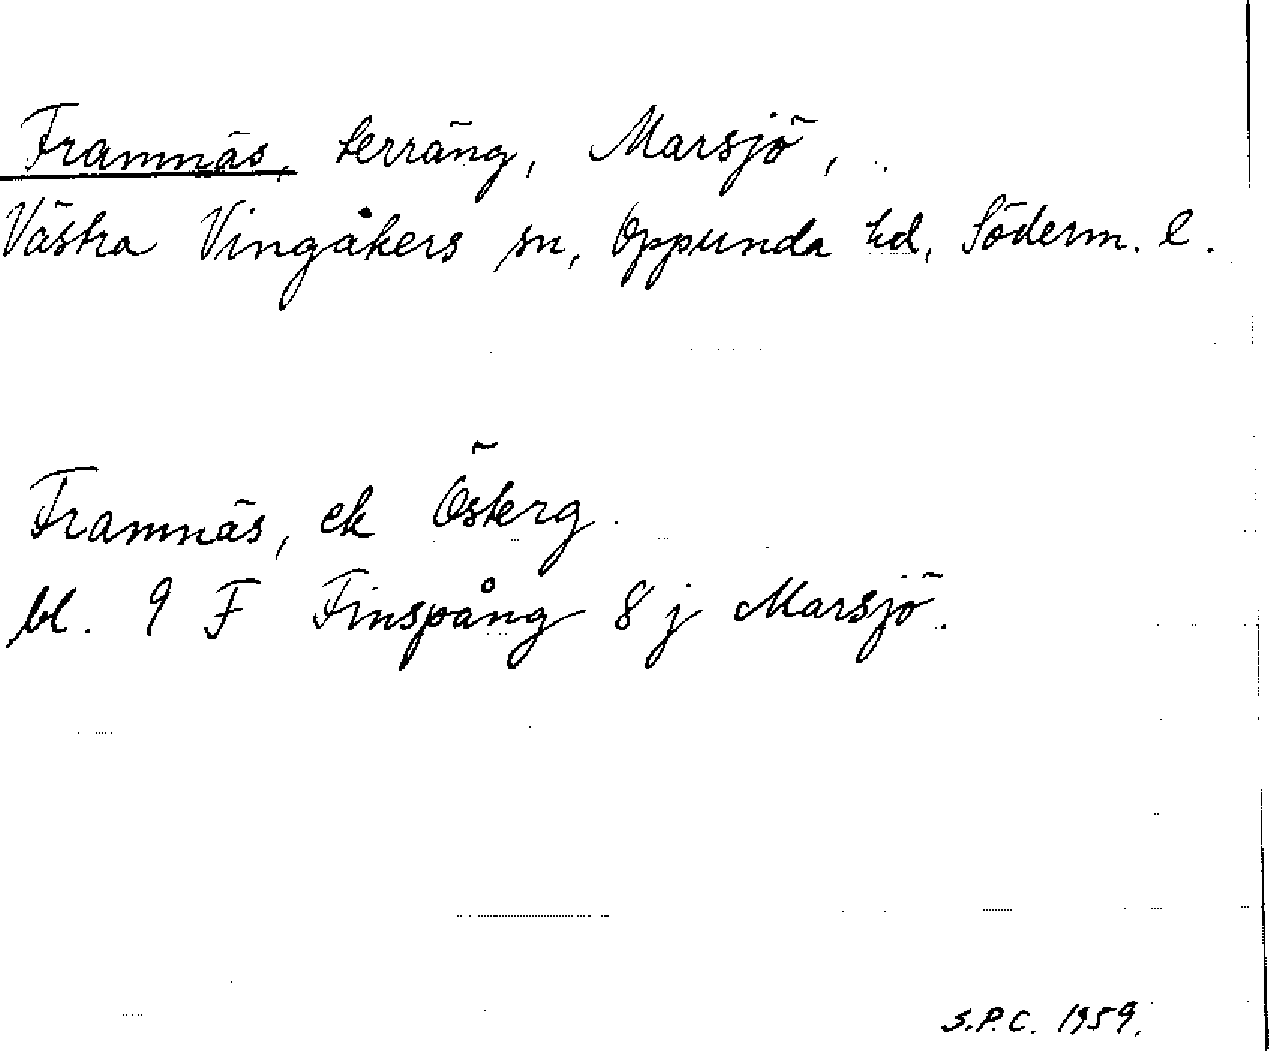 Framnäs, terräng, Marsjö,
Västra Vingåkers sn, Oppunda hd, Söderm. l.
Framnäs, ek Österg.
bl. 9 F Finspång 8 j Marsjö.
S.P.C. 1959.